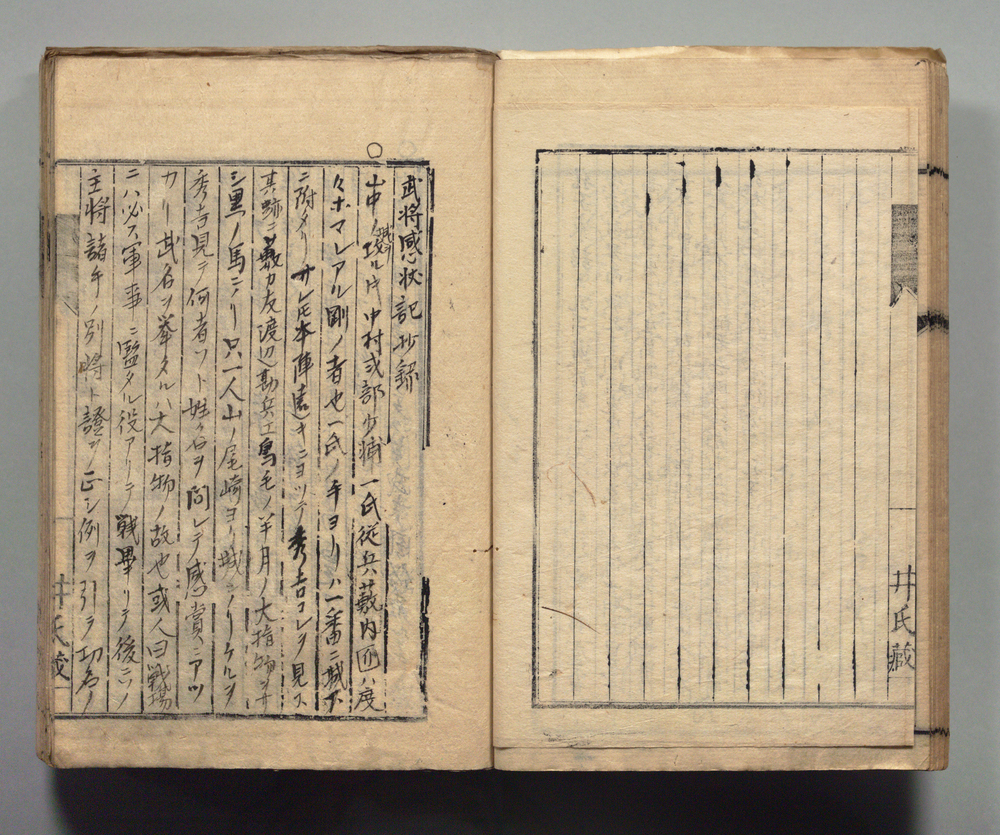 井氏蔵
武将感状記抄録
○山中ノ城ヲ攻ル片中村式部少輔一氏従兵藪内匠ハ度
々ホマレアル剛ノ者也一氏ノ手ヨリハ一番ニ城ヘ
ニ附タリサレ𪜈本陣遠キニヨツテ秀吉コレヲ見ス
其跡ニ藪カ友渡辺勘兵エ鳥毛ノ半月ノ大指物ヲサ
シ黒ノ馬ニノリ只一人山ノ尾崎ヨリ城ヘノリケルヲ
秀吉見テ何者ソト姓名ヲ問レテ感賞ニアツ
カリ武名ヲ挙タルハ大指物ノ故也或人曰戦場
ニハ必ス軍事ニ監タル役アリテ戦畢リテ後ニノ
主将諸手ノ別将ト證ヲ正シ例ヲ引テ功名ノ
井氏蔵